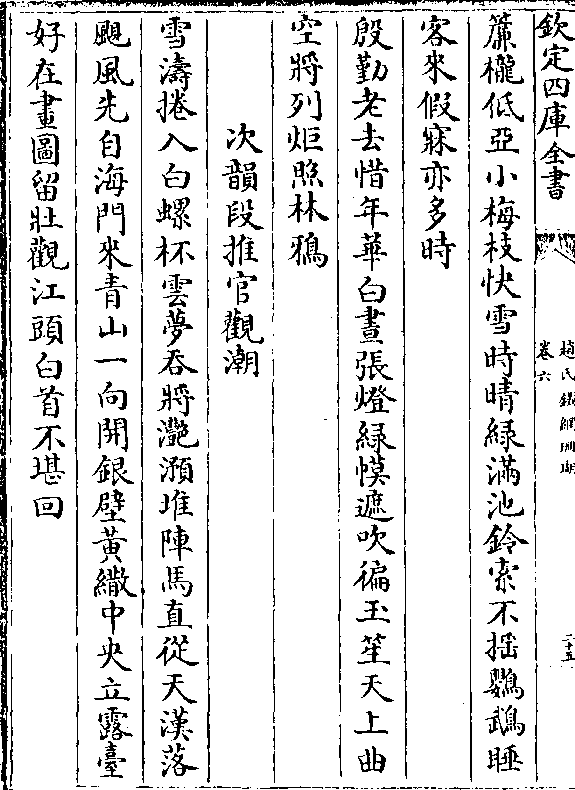 欽定四庫全書
趙氏鐵網珊瑚
卷六
二十五
簾櫳低亞小梅枝快雪時晴綠滿池鈴索不揺鸚鵡睡
客來假寐亦多時
殷勤老去惜年華白晝張燈緑幙遮吹徧玉笙天上曲
空將列炬照林鴉
次韻段推官觀潮
雪濤捲入白螺杯雲夢吞將灔澦堆陣馬直從天漢落
颶風先自海門來青山一向開銀壁黃繖中央立露臺
好在畫圖留壯觀江頭白首不堪回